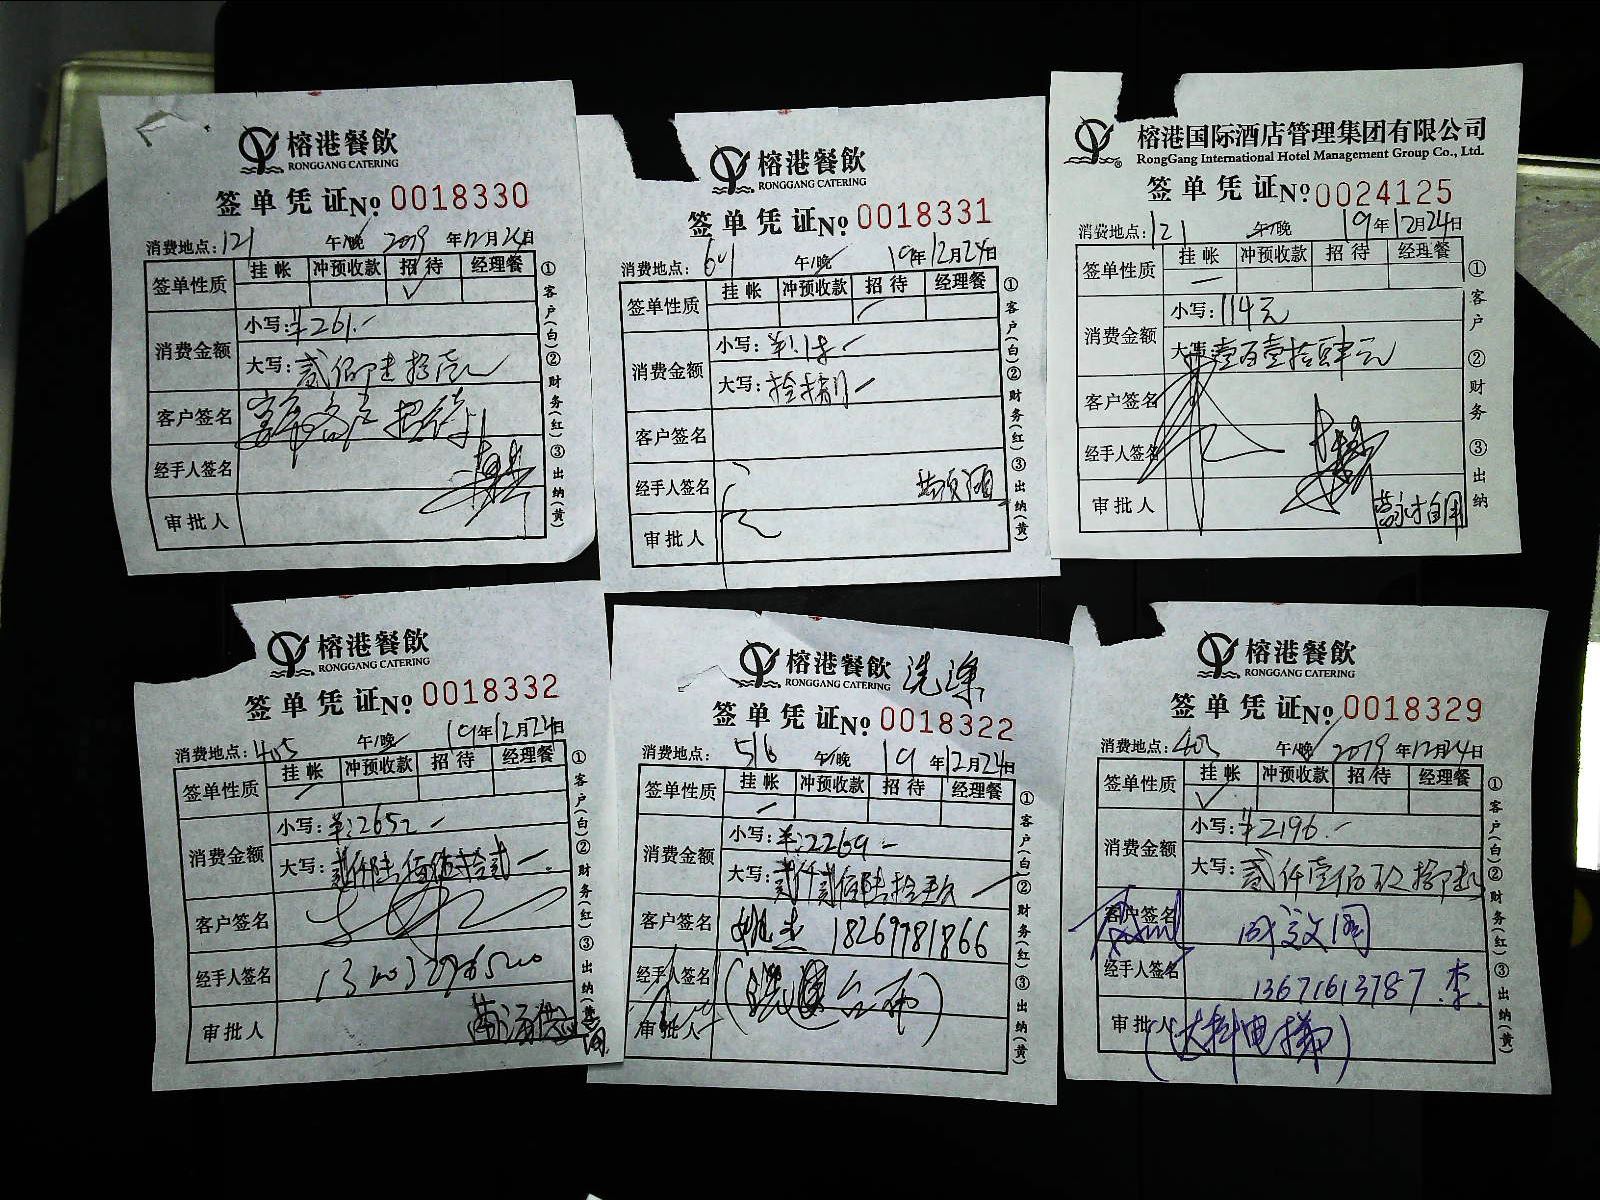 榕港餐飲
RONGGANG CATERING
签单凭证№ 0018330
消费地点：121 午/晚 2019年12月24日
签单性质 挂帐 冲预收款 招待 经理餐
✓
消费金额 小写：¥261.-
大写：贰佰陆拾壹
客户签名 招待
经手人签名
审批人
①客户(白)②财务(红)③出纳(黄)
榕港餐飲
RONGGANG CATERING
签单凭证№ 0018331
消费地点：601 午/晚 19年12月24日
签单性质 挂帐 冲预收款 招待 经理餐
消费金额 小写：
大写：
客户签名
经手人签名
审批人
①客户(白)②财务(红)③出纳(黄)
榕港国际酒店管理集团有限公司
RongGang International Hotel Management Group Co., Ltd.
签单凭证№ 0024125
消费地点：121 午/晚 19年12月24日
签单性质 挂帐 冲预收款 招待 经理餐
消费金额 小写：114元
大写：壹百壹拾肆元
客户签名
经手人签名
审批人
①客户 ②财务 ③出纳
榕港餐飲
RONGGANG CATERING
签单凭证№ 0018332
消费地点：405 午/晚 19年12月24日
签单性质 挂帐 冲预收款 招待 经理餐
消费金额 小写：¥:2652-
大写：贰仟陆佰伍拾贰
客户签名
经手人签名
审批人
①客户(白)②财务(红)③出纳(黄)
榕港餐飲 洗涤
RONGGANG CATERING
签单凭证№ 0018322
消费地点：516 午/晚 19年12月24日
签单性质 挂帐 冲预收款 招待 经理餐
消费金额 小写：¥:2269-
大写：贰仟贰佰陆拾玖
客户签名 姚杰 18269981866
经手人签名 台布
审批人
①客户(白)②财务(红)③出纳(黄)
榕港餐飲
RONGGANG CATERING
签单凭证№ 0018329
消费地点：403 午/晚 2019年12月24日
签单性质 挂帐 冲预收款 招待 经理餐
✓
消费金额 小写：¥2196.-
大写：贰仟壹佰玖拾陆
客户签名
经手人签名 13671613787 李
审批人 (达科电梯)
①客户(白)②财务(红)③出纳(黄)